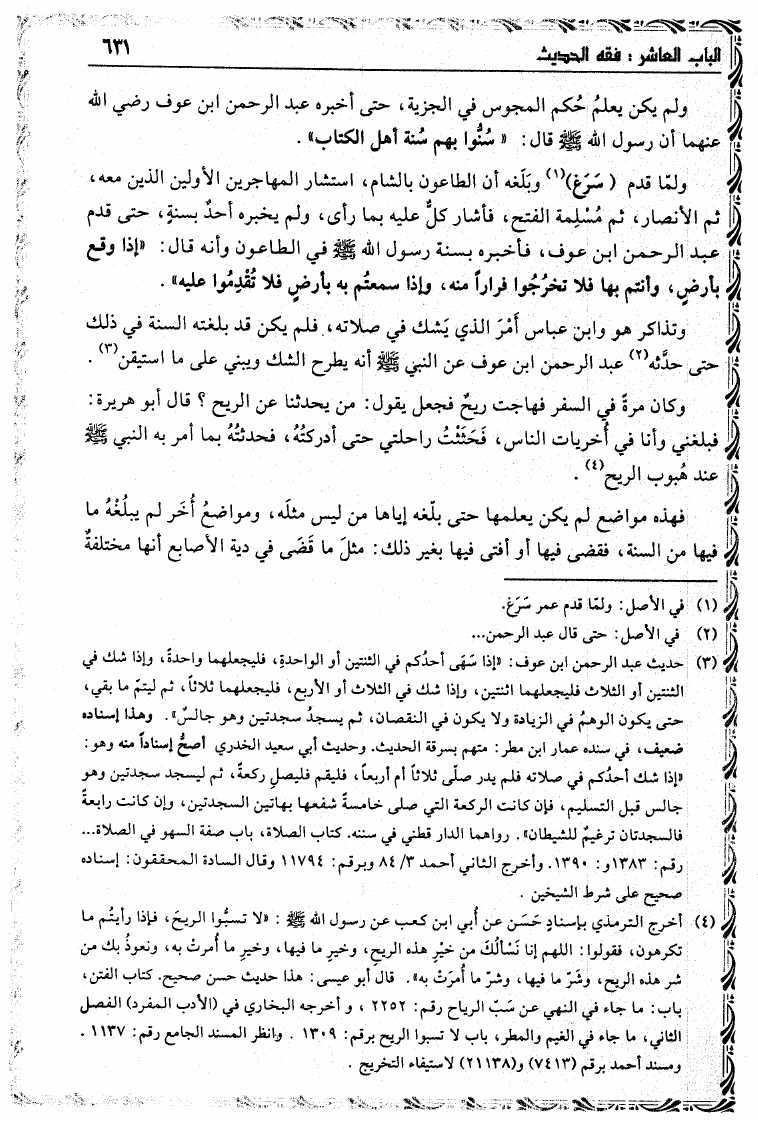 الباب العاشر : فقه الحديث
٦٣١
ولم يكن يعلمُ حُكم المجوس في الجزية، حتى أخبره عبد الرحمن ابن عوف رضي الله
عنهما أن رسول الله ﷺ قال: « سُنُّوا بهم سُنة أهل الكتاب» .
ولمّا قدم ( سَرَغ)(١) وبَلَغه أن الطاعون بالشام، استشار المهاجرين الأولين الذين معه،
ثم الأنصار، ثم مُسْلِمة الفتح، فأشار كلٌّ عليه بما رأى، ولم يخبره أحدٌ بسنةٍ، حتى قدم
عبد الرحمن ابن عوف، فأخبره بسنة رسول الله ﷺ في الطاعون وأنه قال: «إذا وقع
بأرضٍ، وأنتم بها فلا تخرُجُوا فراراً منه، وإذا سمعتُم به بأرضٍ فلا تُقْدِمُوا عليه» .
وتذاكر هو وابن عباس أَمْرَ الذي يَشك في صلاته، فلم يكن قد بلغته السنة في ذلك
حتى حدَّثه(٢) عبد الرحمن ابن عوف عن النبي ﷺ أنه يطرح الشك ويبني على ما استيقن(٣) .
وكان مرةً في السفر فهاجت ريحٌ فجعل يقول: من يحدثنا عن الريح ؟ قال أبو هريرة:
فبلغني وأنا في أُخريات الناس، فَحَثَثْتُ راحلتي حتى أدركتُهُ، فحدثتُهُ بما أمر به النبي ﷺ
عند هُبوب الريح(٤) .
فهذه مواضع لم يكن يعلمها حتى بلّغه إياها من ليس مثلَه، ومواضعُ أُخَر لم يبلُغْهُ ما
فيها من السنة، فقضى فيها أو أفتى فيها بغير ذلك: مثلَ ما قَضَى في دية الأصابع أنها مختلفةٌ
(١) في الأصل: ولمّا قدم عمر سَرَغ.
(٢) في الأصل: حتى قال عبد الرحمن...
(٣) حديث عبد الرحمن ابن عوف: «إذا سَهَى أحدُكم في الثنتين أو الواحدةِ، فليجعلهما واحدةً، وإذا شك في
الثنتين أو الثلاث فليجعلهما اثنتين، وإذا شك في الثلاث أو الأربع، فليجعلهما ثلاثاً، ثم ليتمّ ما بقي،
حتى يكون الوهمُ في الزيادة ولا يكون في النقصان، ثم يسجدُ سجدتين وهو جالسٌ». وهذا إسناده
ضعيف، في سنده عمار ابن مطر: متهم بسرقة الحديث. وحديث أبي سعيد الخدري أصحُّ إسناداً منه وهو:
«إذا شك أحدُكم في صلاته فلم يدر صلّى ثلاثاً أم أربعاً، فليقم فليصلِ ركعةً، ثم ليسجد سجدتين وهو
جالس قبل التسليم، فإن كانت الركعة التي صلى خامسةً شفعها بهاتين السجدتين، وإن كانت رابعةً
فالسجدتان ترغيمٌ للشيطان». رواهما الدار قطني في سننه. كتاب الصلاة، باب صفة السهو في الصلاة...
رقم: ١٣٨٣و: ١٣٩٠. وأخرج الثاني أحمد ٣/ ٨٤ وبرقم: ١١٧٩٤ وقال السادة المحققون: إسناده
صحيح على شرط الشيخين .
(٤) أخرج الترمذي بإسنادٍ حَسَن عن أُبي ابن كعب عن رسول الله ﷺ : «لا تسبُّوا الريحَ، فإذا رأيتُم ما
تكرهون، فقولوا: اللهم إنا نَسْألُكَ من خيْرِ هذه الريح، وخيرِ ما فيها، وخيرِ ما أُمرتْ به، ونعوذُ بك من
شر هذه الريح، وشَرّ ما فيها، وشرّ ما أُمرَتْ به». قال أبو عيسى: هذا حديث حسن صحيح. كتاب الفتن،
باب: ما جاء في النهي عن سَبّ الرياح رقم: ٢٢٥٢ ، و أخرجه البخاري في (الأدب المفرد) الفصل
الثاني، ما جاء في الغيم والمطر، باب لا تسبوا الريح برقم: ١٣٠٩ . وانظر المسند الجامع رقم: ١١٣٧ .
ومسند أحمد برقم (٧٤١٣) و(٢١١٣٨) لاستيفاء التخريج .